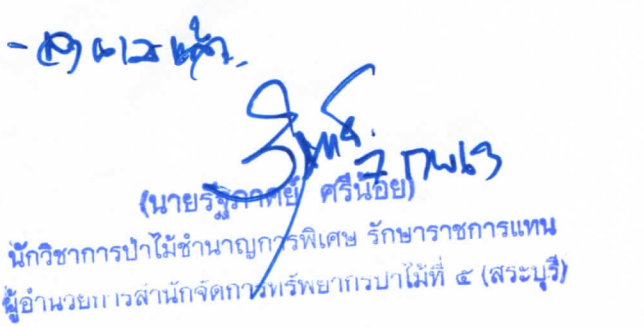 - ลงนามแล้ว
7 กพ 63
(นายรัฐภาคย์ ศรีน้อย)
นักวิชาการป่าไม้ชำนาญการพิเศษ รักษาราชการแทน
ผู้อำนวยการสำนักจัดการทรัพยากรป่าไม้ที่ ๕ (สระบุรี)